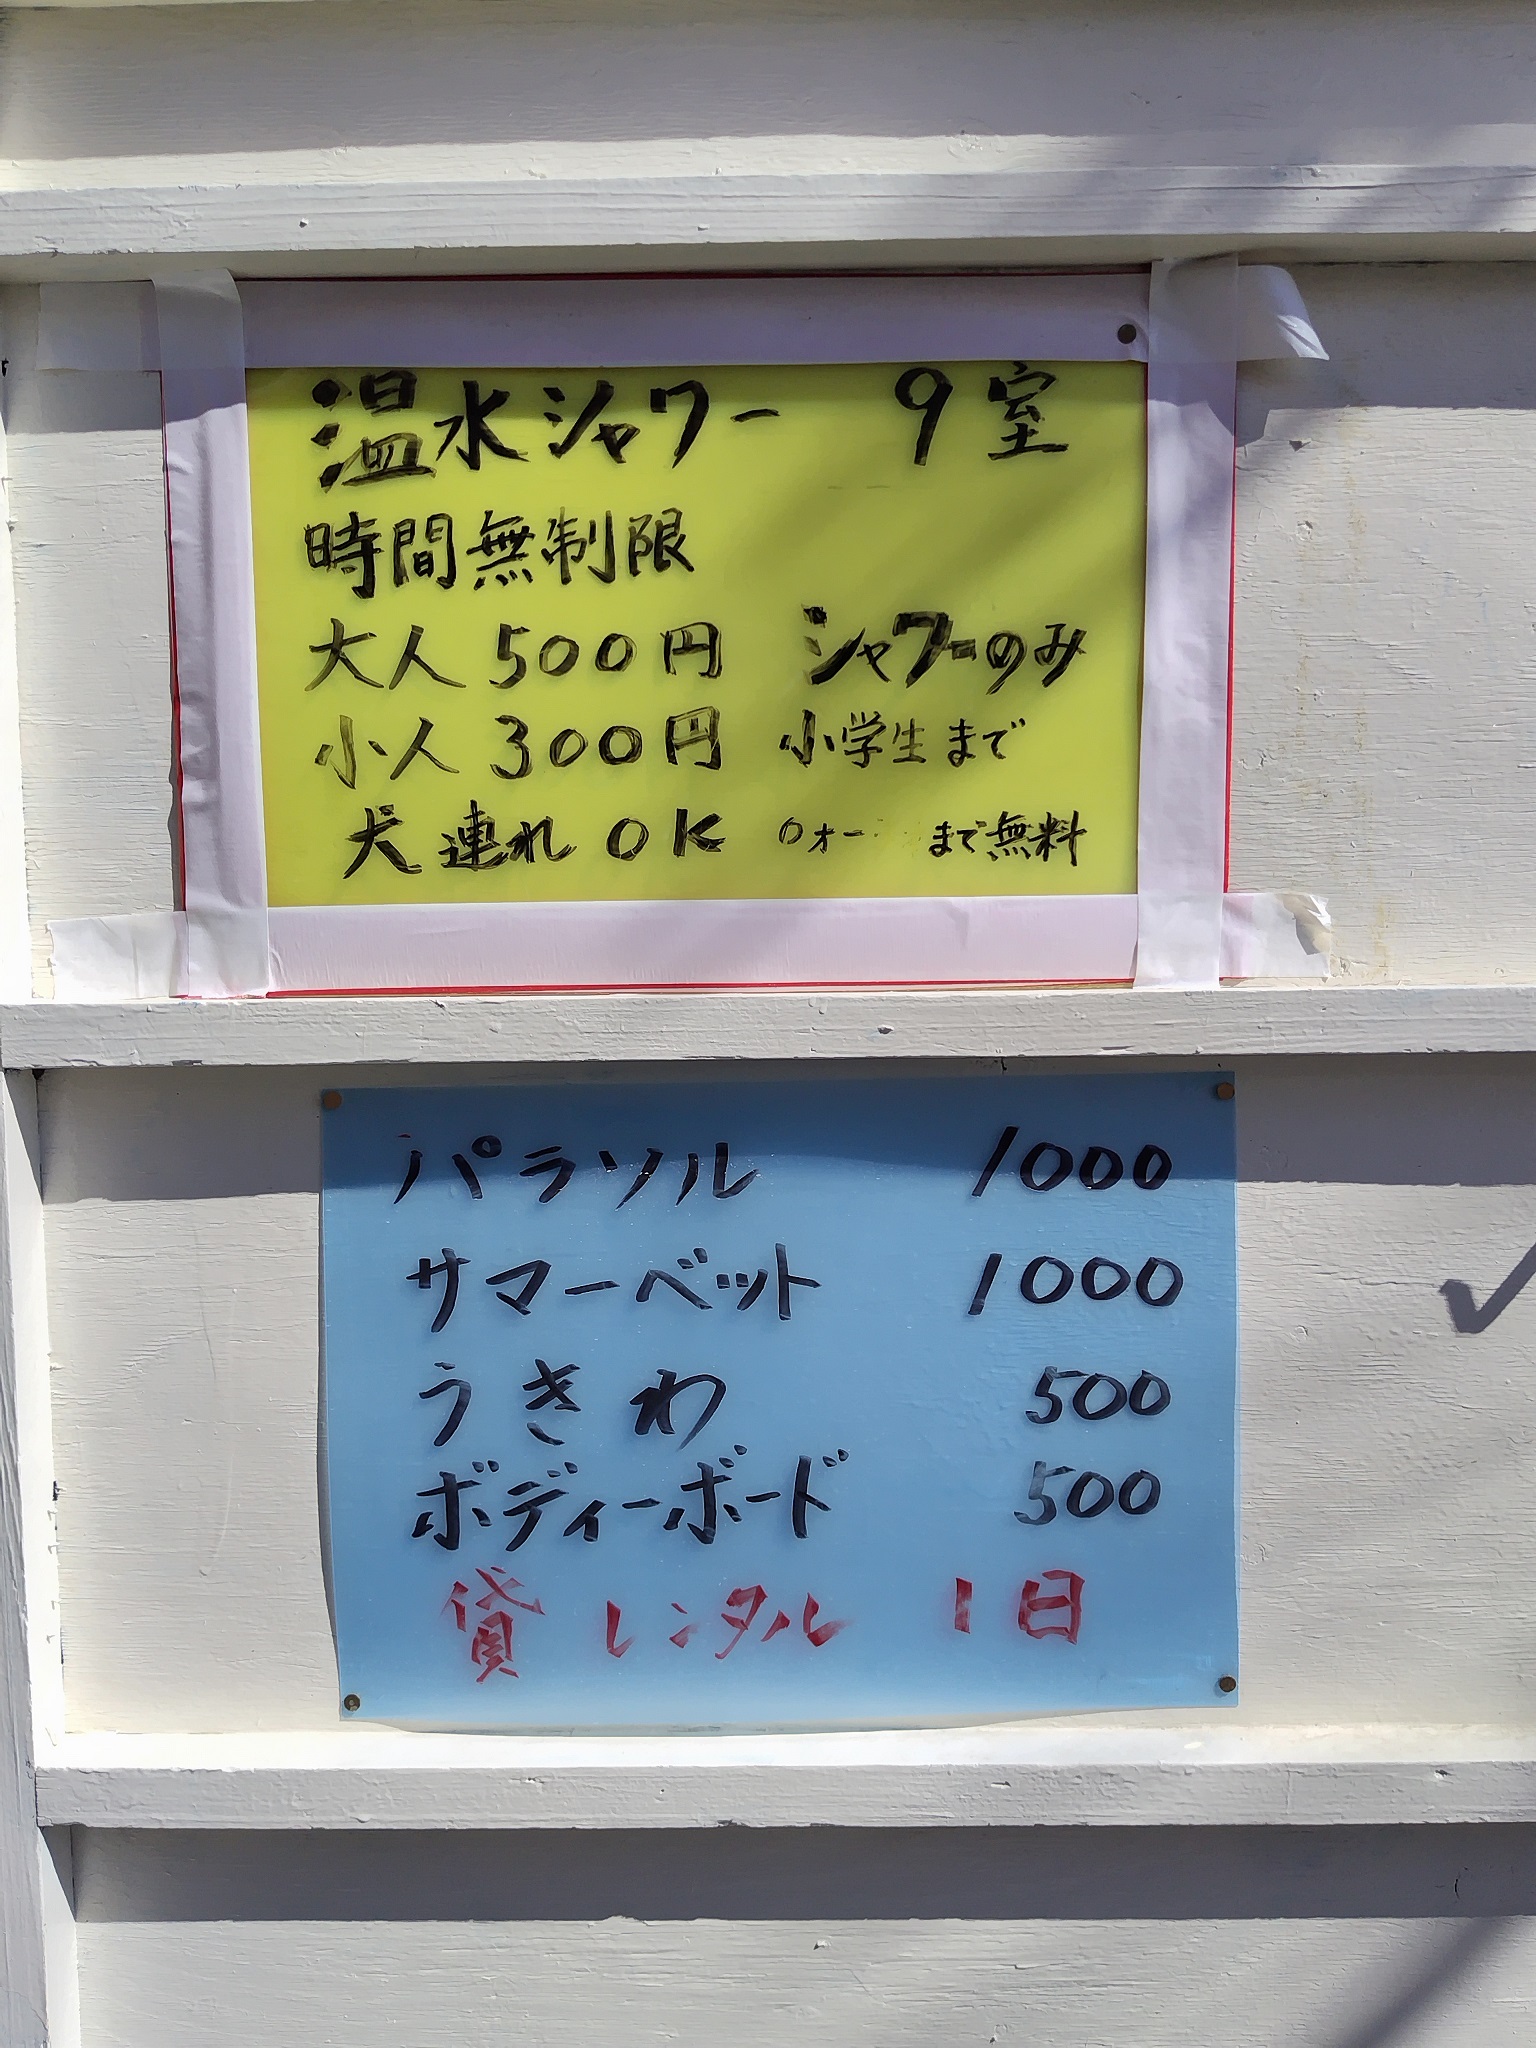 温水シャワー 9室
時間無制限
大人 500円 シャワーのみ
小人 300円 小学生まで
犬連れ OK まで無料
パラソル 1000
サマーベット 1000
うきわ 500
ボディーボード 500
貸レンタル 1日